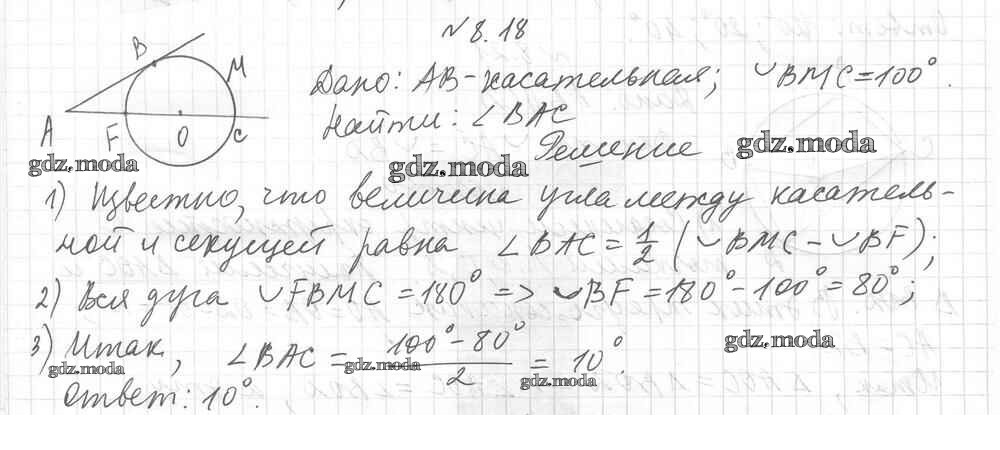 N 8.18
B
M
A
F
O
C
Дано: AB - касательная; ◡BMC = 100°.
Найти: ∠BAC
Решение
gdz.moda
gdz.moda
gdz.moda
1) Известно, что величина угла между касатель-
ной и секущей равна ∠BAC = 1/2 (◡BMC - ◡BF);
2) Вся дуга ◡FBMC = 180° => ◡BF = 180° - 100° = 80°;
3) Итак, ∠BAC = (100° - 80°)/2 = 10°.
gdz.moda
gdz.moda
gdz.moda
gdz.moda
Ответ: 10°.